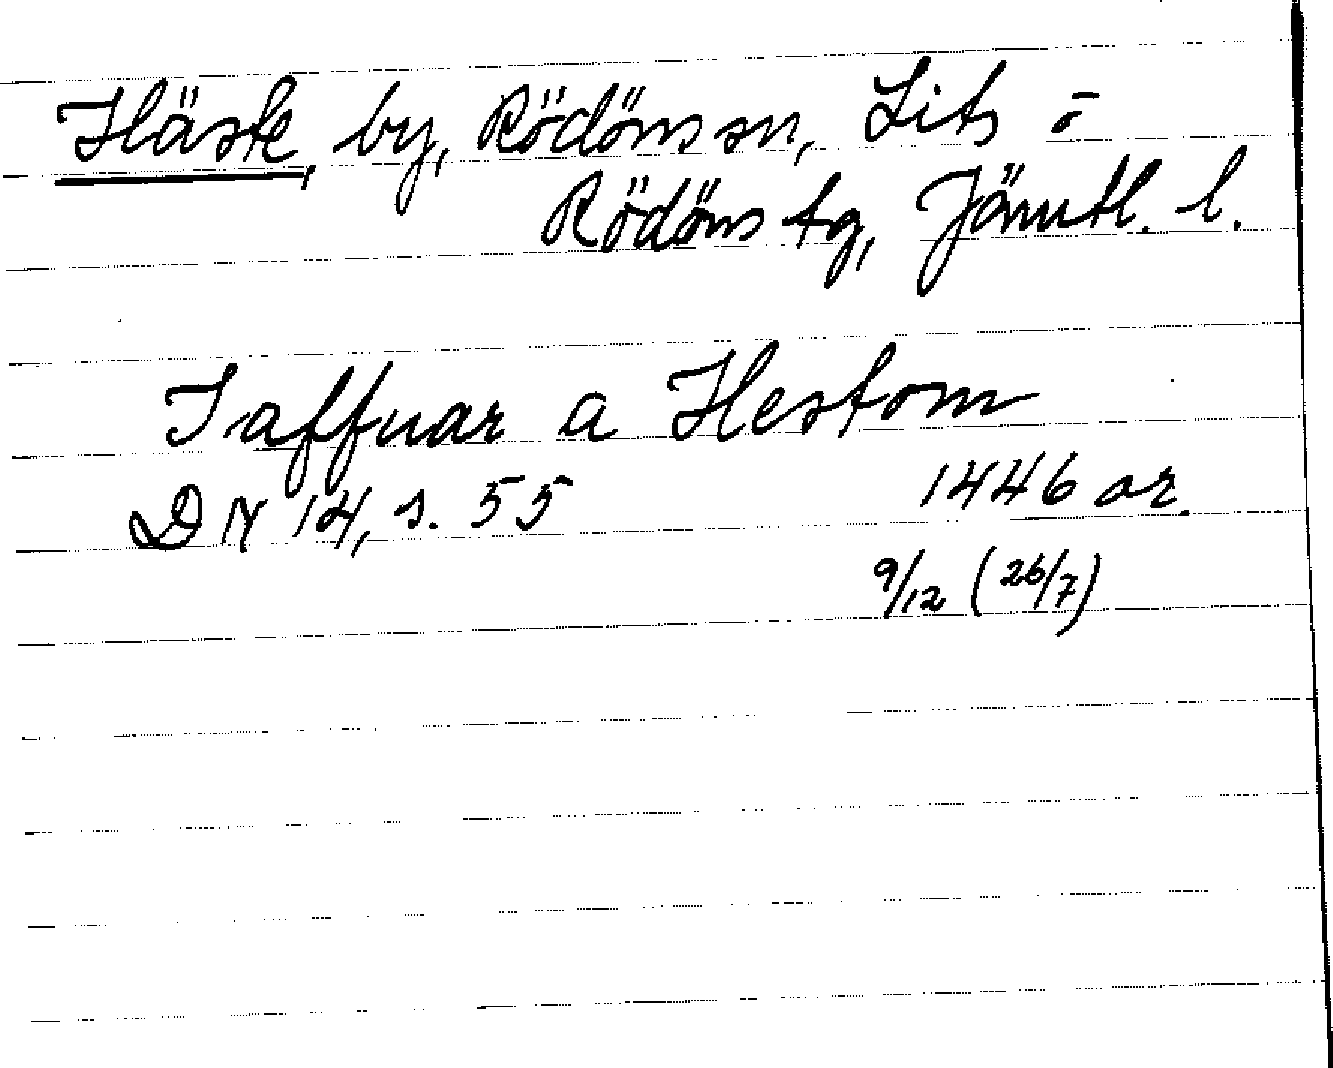 Häste, by, Rödöns sn, Lits o
Rödöns tg, Jämtl. l.
Iaffuar a Hestom
DN 14, s. 55 1446 or.
9/12 (26/7)